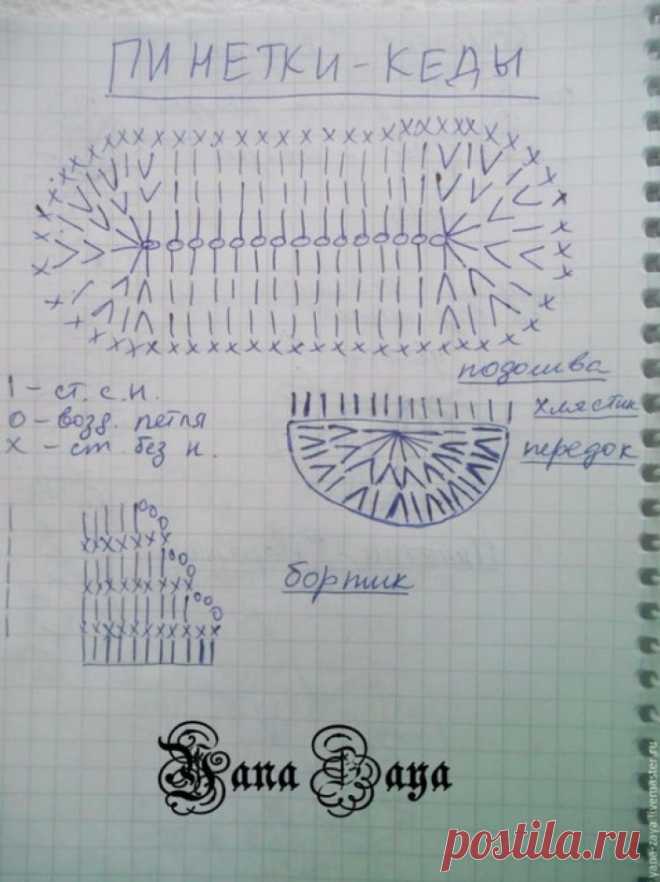 ПИНЕТКИ-КЕДЫ
подошва
I - ст. с. н.
O - возд. петля
X - ст. без н.
хлястик
передок
бортик
Yana Zaya
postila.ru
yana-zaya.livemaster.ru